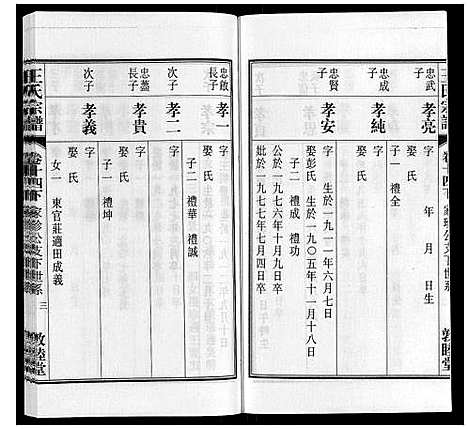 王氏宗譜
忠武
子
孝亮
字 年 月 日生
娶 氏
忠成
子
孝純
字
娶 氏
子一 禮全
忠賢
子
孝安
字 生於一九一一年六月七日
娶彭氏 生於一九〇五年十一月十八日
子二 禮成 禮功
公於一九七六年十月九日卒
妣於一九七七年七月四日卒
敦睦堂
忠啟
長子
孝一
字
娶 氏
子二 禮華 禮誠
次子
孝二
字
娶 氏
忠藎
長子
孝貴
字
娶 氏
子一 禮坤
次子
孝義
字
娶 氏
女一 東官莊適田成義
王氏宗譜
卷十四下
家珍公支下世系
三
敦睦堂